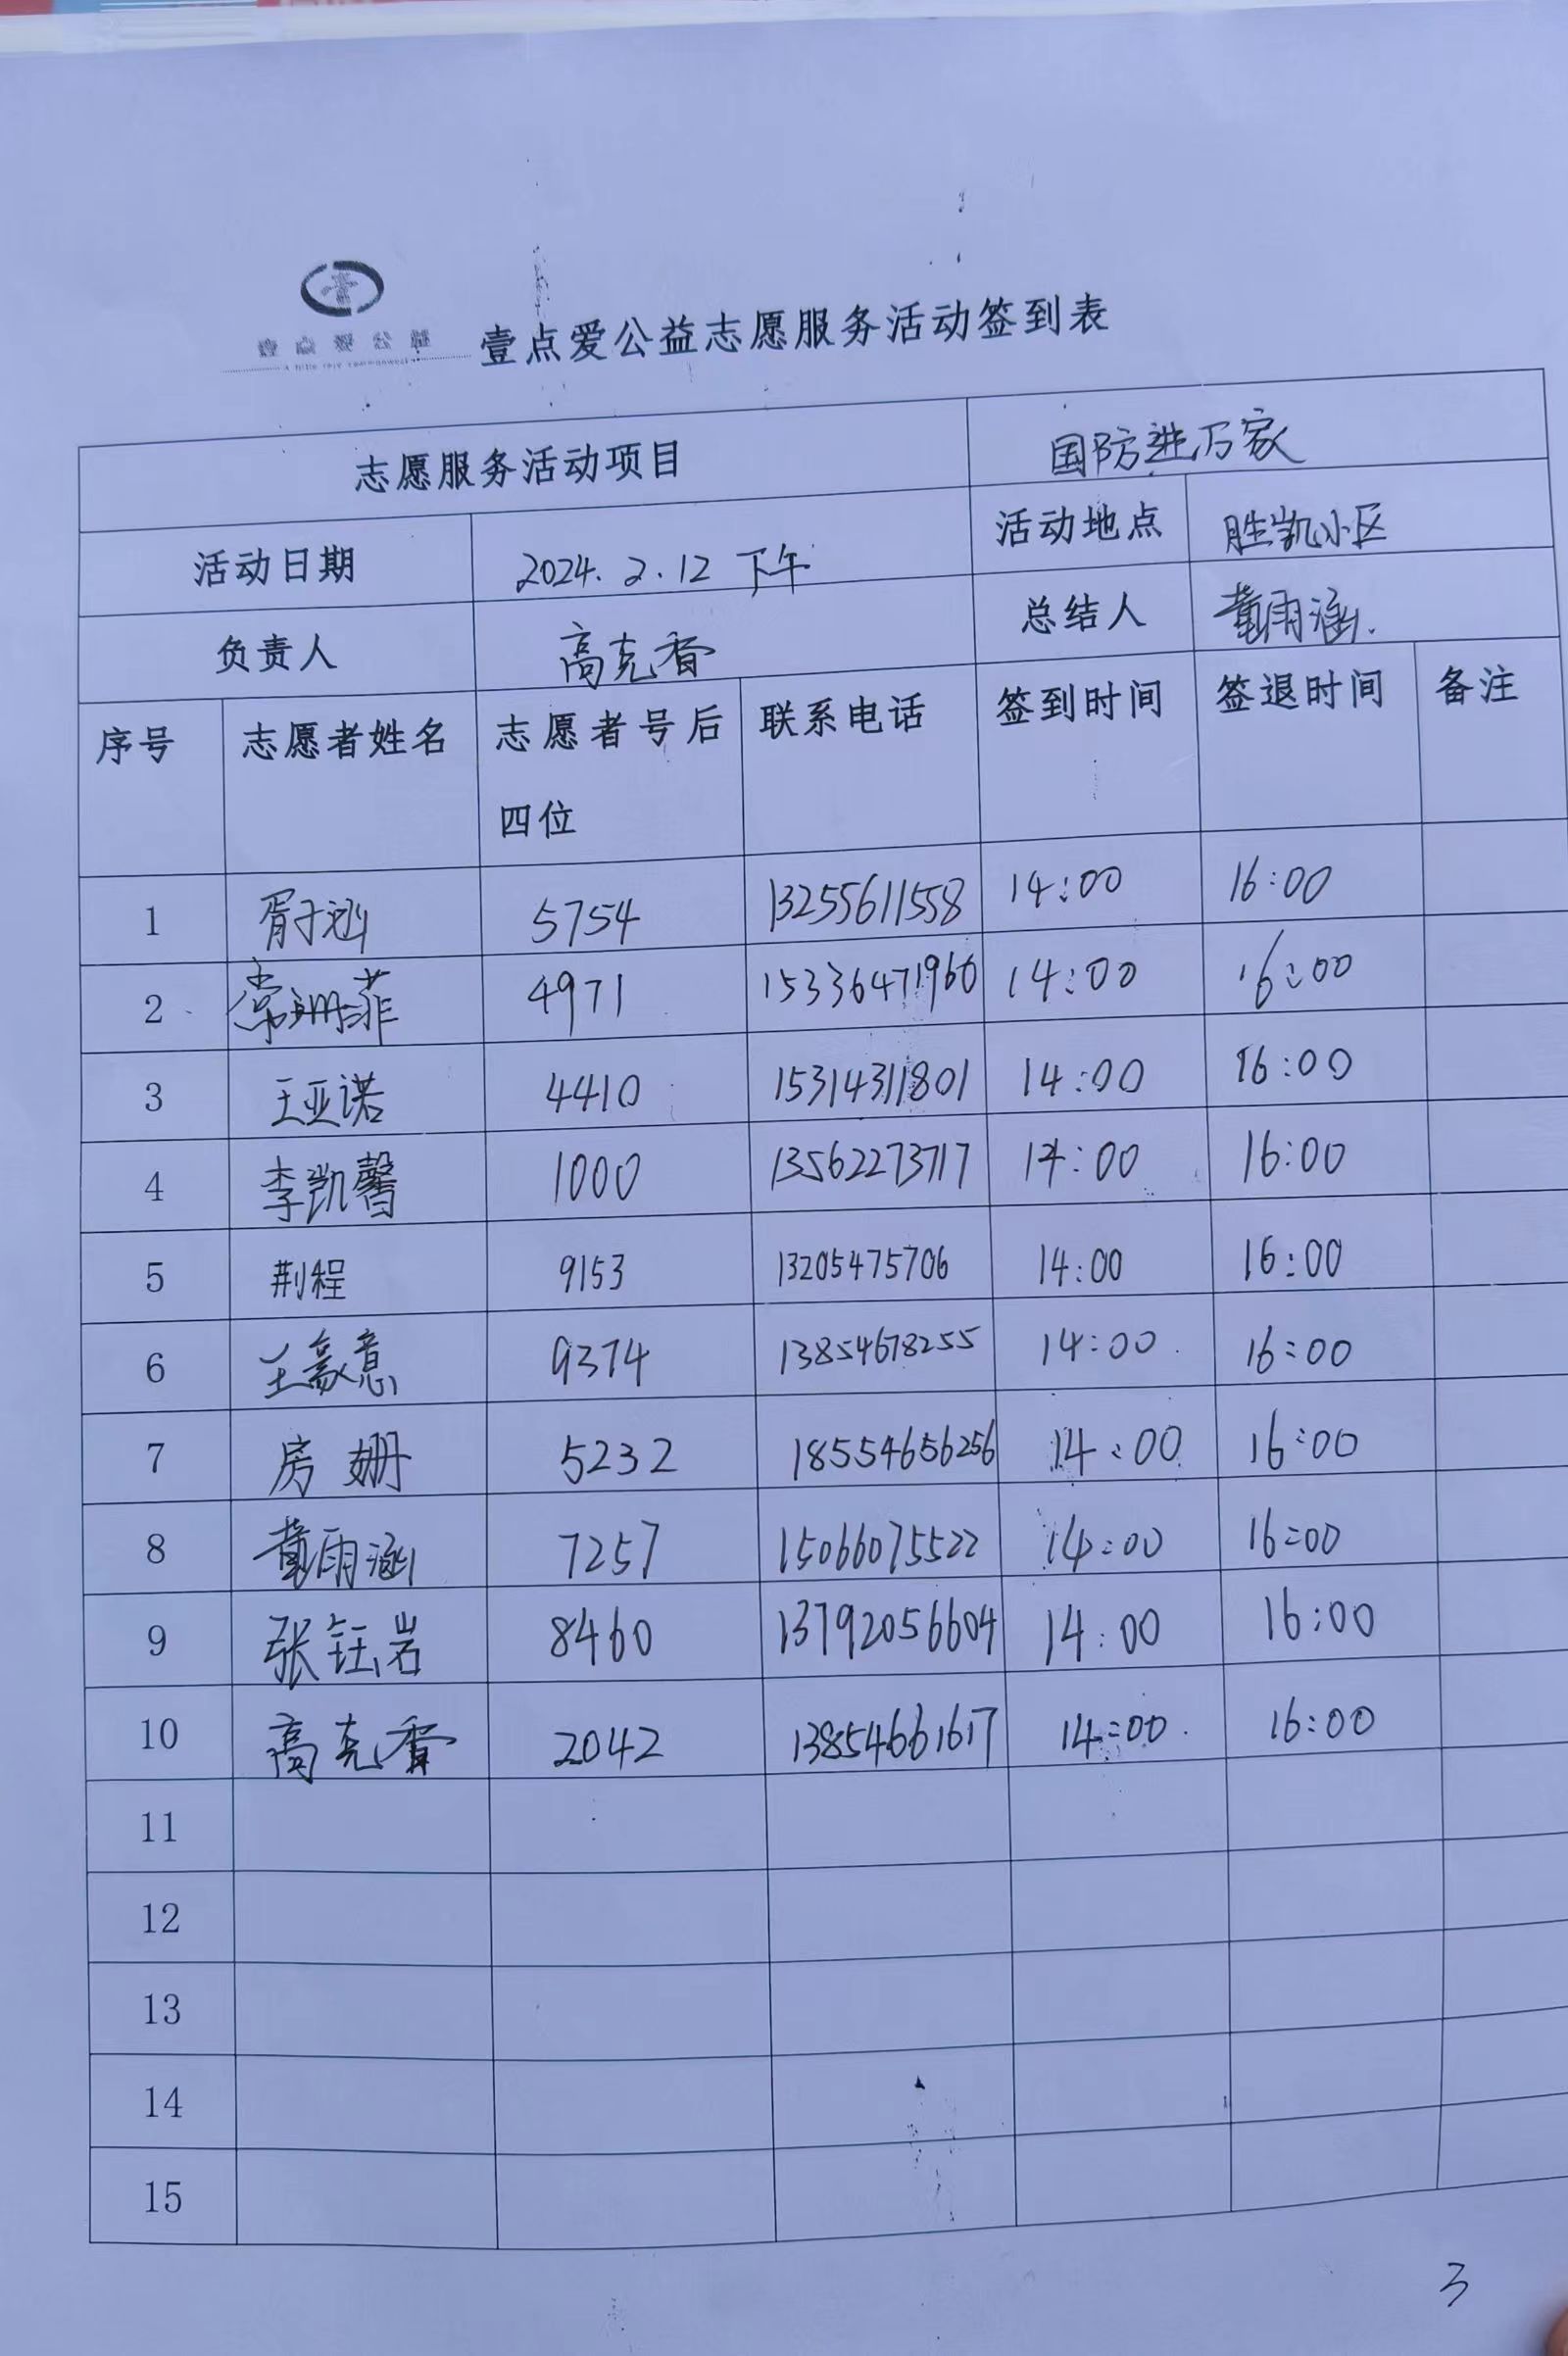 壹点爱公益
壹点爱公益志愿服务活动签到表
志愿服务活动项目 国防进万家
活动日期 2024.2.12 下午 活动地点 胜凯小区
负责人 高克香 总结人 董雨涵.
序号 志愿者姓名 志愿者号后四位 联系电话 签到时间 签退时间 备注
1 胥子涵 5754 13255611558 14:00 16:00
2 常珊菲 4971 15336471960 14:00 16:00
3 王亚诺 4410 15314311801 14:00 16:00
4 李凯馨 1000 13562273717 14:00 16:00
5 荆程 9153 13205475706 14:00 16:00
6 王豪意 9374 13854678255 14:00 16:00
7 房姗 5232 18554656256 14:00 16:00
8 董雨涵 7257 15066075522 14:00 16:00
9 张钰岩 8460 13792056604 14:00 16:00
10 高克香 2042 13854661617 14:00 16:00
11
12
13
14
15
3